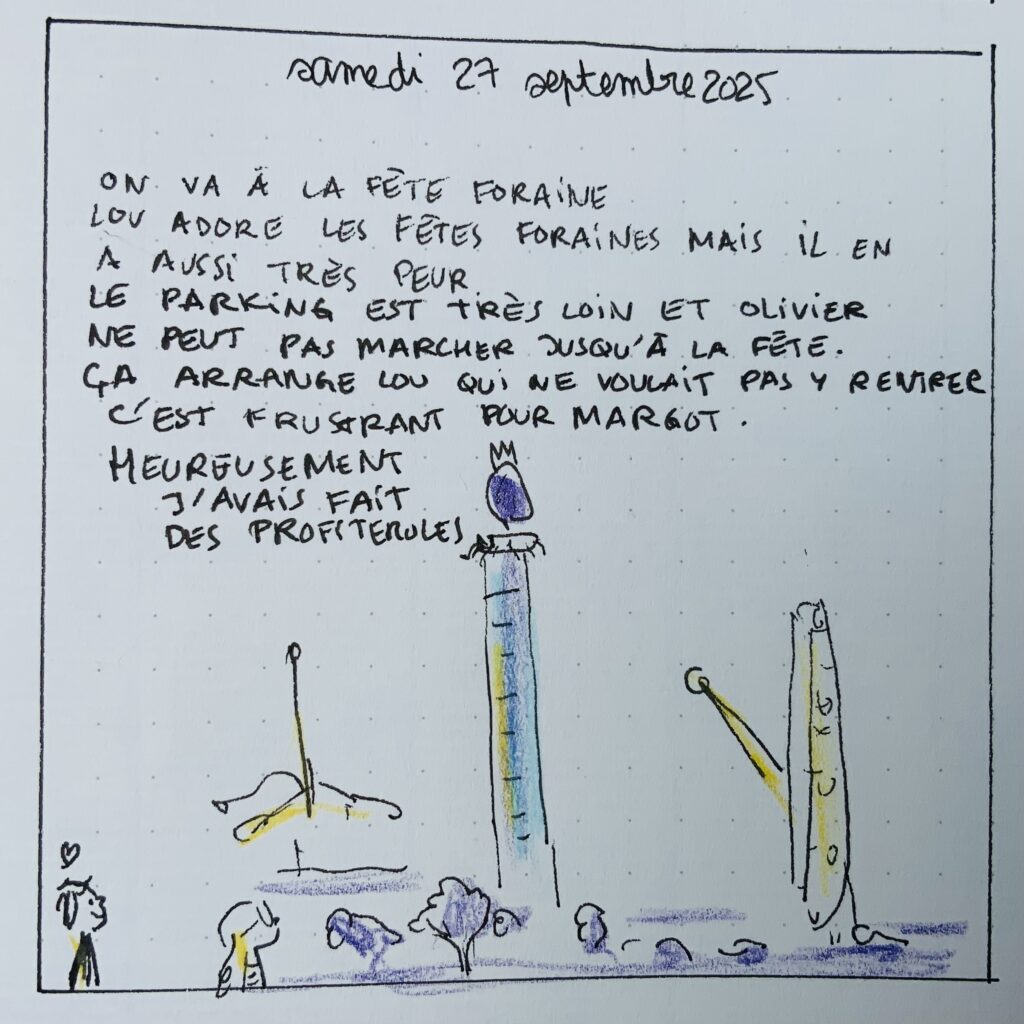 samedi 27 septembre 2025
ON VA À LA FÊTE FORAINE
LOU ADORE LES FÊTES FORAINES MAIS IL EN
A AUSSI TRÈS PEUR
LE PARKING EST TRÈS LOIN ET OLIVIER
NE PEUT PAS MARCHER JUSQU'À LA FÊTE.
ÇA ARRANGE LOU QUI NE VOULAIT PAS Y RENTRER
C'EST FRUSTRANT POUR MARGOT.
HEUREUSEMENT
J'AVAIS FAIT
DES PROFITEROLES